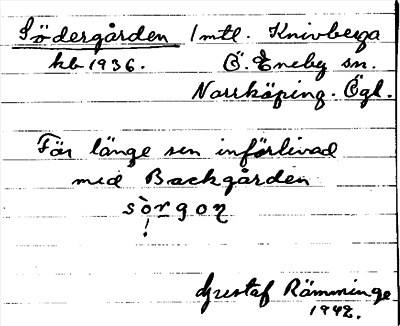 Södergården 1 mtl. Knivberga
kb 1936. Ö. Eneby sn.
Norrköping. Ögl.
För länge sen införlivad
med Backgården
sö̀rgo̲ɳ
!
Gustaf Rämminge
1942.